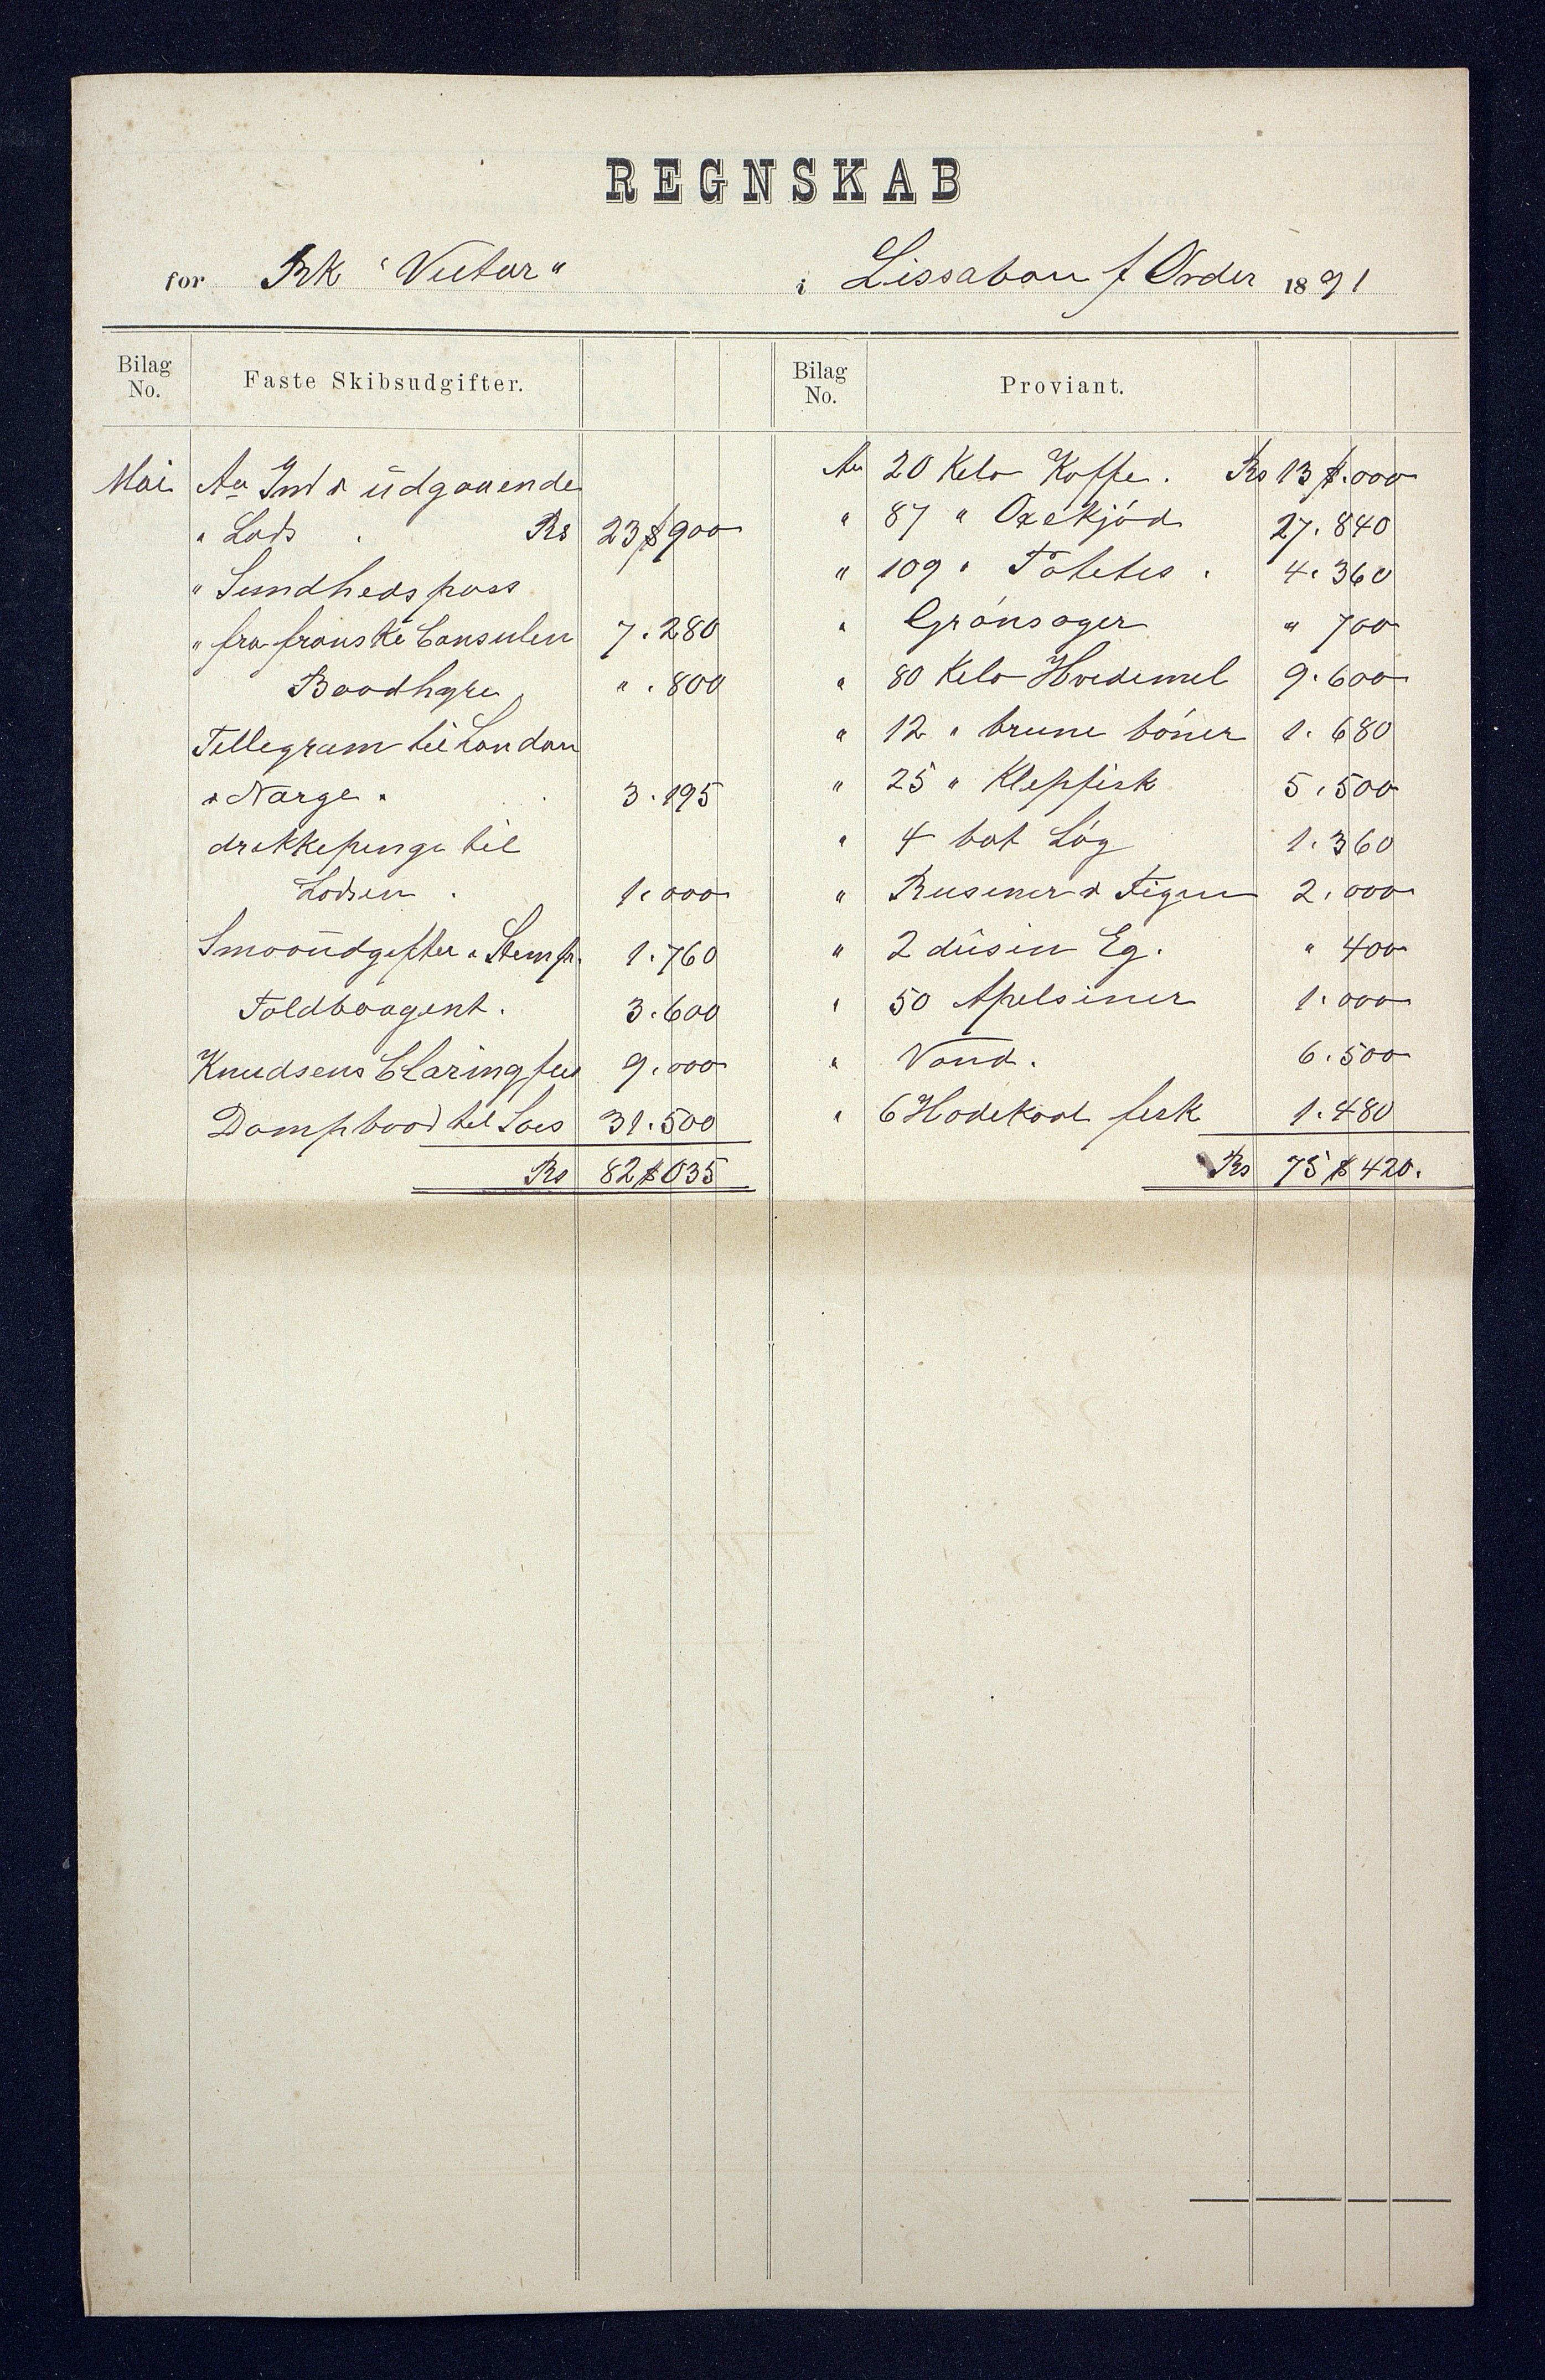 REGNSKAB
for Bk "Victor" i Lissabon f Order 1891
Bilag No. Faste Skibsudgifter.
Mai An Ind & udgaaende
" Lods . Rs 23$900
" Sundhedspass
" fra franske Consulen 7.280
Baadhyre ".800
Tellegram til London
& Norge. 3.195
drekkepenge til
Lodsen . 1.000
Smaaudgifter & Stemp. 1.760
Toldbaagent. 3.600
Knudsens Claring fee 9.000
Dampbaad til Soes 31.500
Rs 82$035
Bilag No. Proviant.
An 20 Kelo Kaffe. Rs 13$.000
" 87 " Oxekjód 27.840
" 109 " Potetes . 4.360
" Grónsager " 700
" 80 Kelo Hvedemel 9.600
" 12 " brune bóner 1.680
" 25 " Klepfisk 5.500
" 4 bot Lóg 1.360
" Rusener & Figen 2.000
" 2 dusin Eg. " 400
" 50 Apelsiner 1.000
" Vand. 6.500
" 6 Hodekaal fersk 1.480
Rs 75$420.